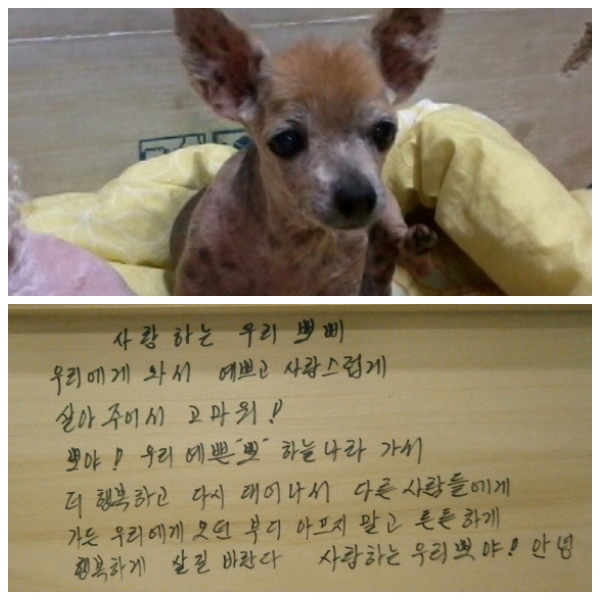 사랑하는 우리 뽀삐
우리에게 와서 예쁘고 사랑스럽게
살아 주어서 고마워!
뽀야! 우리 예쁜 "뽀" 하늘나라 가서
더 행복하고 다시 태어나서 다른 사람들에게
가든 우리에게 오던 부디 아프지 말고 튼튼하게
행복하게 살길 바란다 사랑하는 우리 뽀야! 안녕